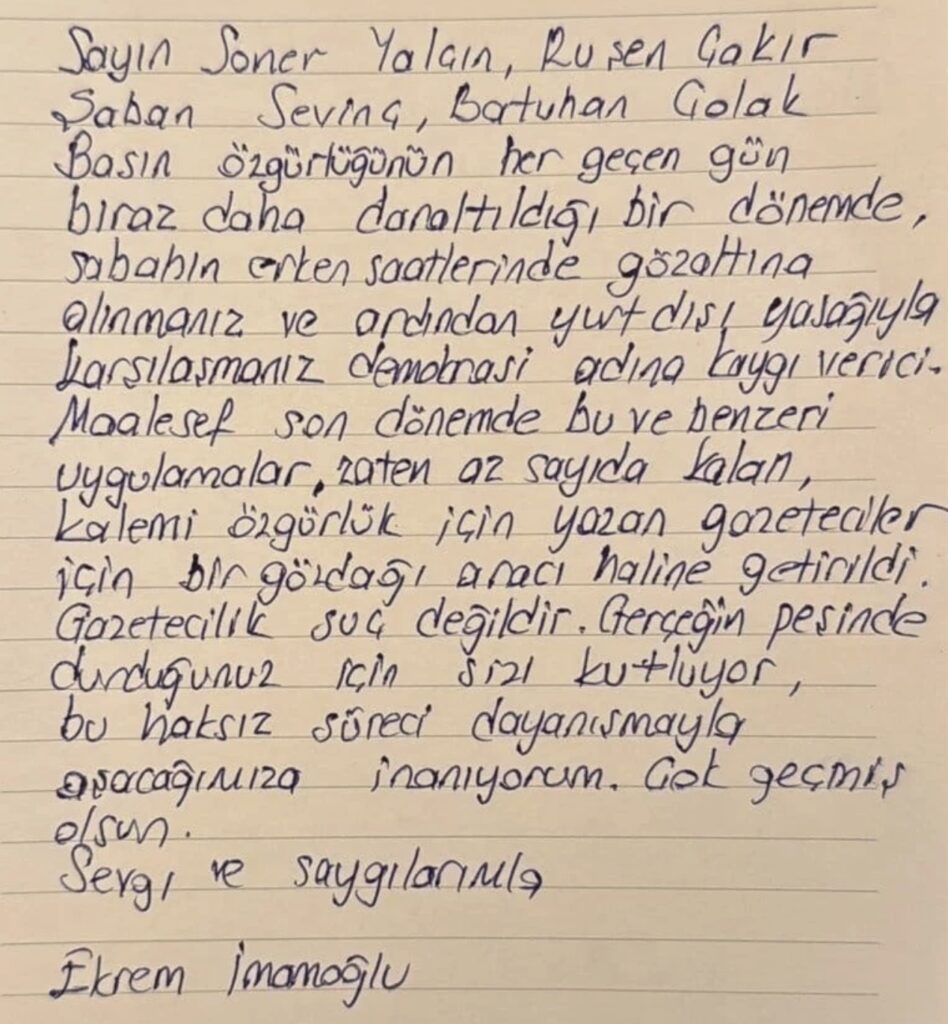 Sayın Soner Yalçın, Ruşen Çakır
Şaban Sevinç, Batuhan Çolak
Basın özgürlüğünün her geçen gün
biraz daha daraltıldığı bir dönemde,
sabahın erken saatlerinde gözaltına
alınmanız ve ardından yurt dışı yasağıyla
karşılaşmanız demokrasi adına kaygı verici.
Maalesef son dönemde bu ve benzeri
uygulamalar, zaten az sayıda kalan,
kalemi özgürlük için yazan gazeteciler
için bir gözdağı aracı haline getirildi.
Gazetecilik suç değildir. Gerçeğin peşinde
durduğunuz için sizi kutluyor,
bu haksız süreci dayanışmayla
aşacağımıza inanıyorum. Çok geçmiş
olsun.
Sevgi ve saygılarımla
Ekrem İmamoğlu